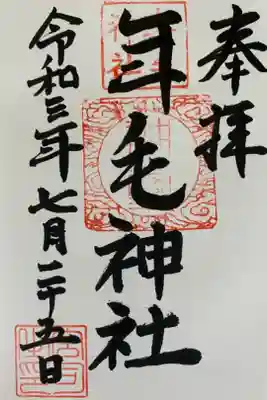 奉拝
年毛神社
令和三年七月二十五日